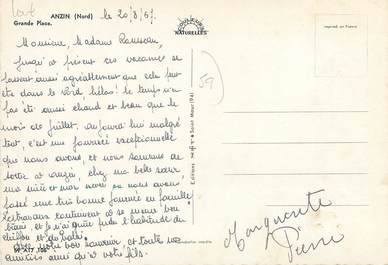 ANZIN (Nord)
le 20/8/67.
Grande Place.
COULEURS
NATURELLES
Imprimé en France
Monsieur, Madame Rousseau,
Jusqu'à présent ces vacances se
passent aussi agréablement que cela peut
être dans le Nord, hélas! le temps n'a
pas été aussi chaud et beau que le
mois de juillet. Aujourd'hui malgré
tout, c'est une journée exceptionnelle
que nous avons, et nous sommes
à Anzin, chez ma belle sœur
ma mère et mon mari nous avons
passé une très bonne journée en famille
continuent et se mener bon
et je n'ai guère l'habitude du
bon souvenir et toutes nos
amitiés ainsi qu'à votre fils.
59
Editions
Saint-Maur (94)
59 A17 106
Marguerite
Pierre